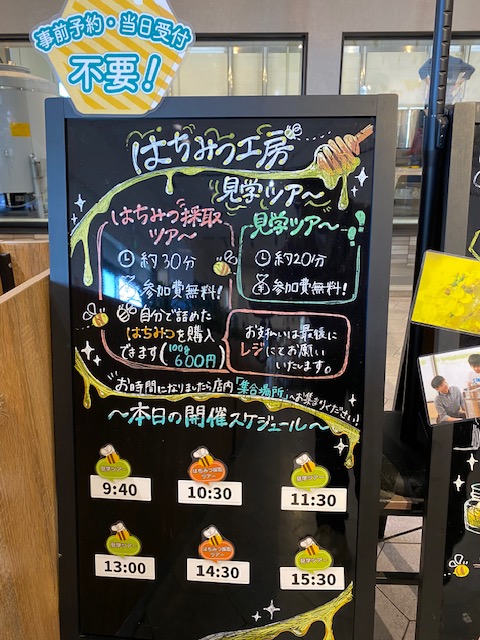 事前予約・当日受付
不要！
はちみつ工房
見学ツアー
はちみつ採取
ツアー
約30分
参加費無料!
自分で詰めた
はちみつを購入
できます(100g 600円)
見学ツアー
約20分
参加費無料!
お支払いは最後に
レジにてお願い
いたします。
お時間になりましたら店内「集合場所」へお集まりください!
〜本日の開催スケジュール〜
見学ツアー
9:40
はちみつ採取
ツアー
10:30
見学ツアー
11:30
見学ツアー
13:00
はちみつ採取
ツアー
14:30
見学ツアー
15:30